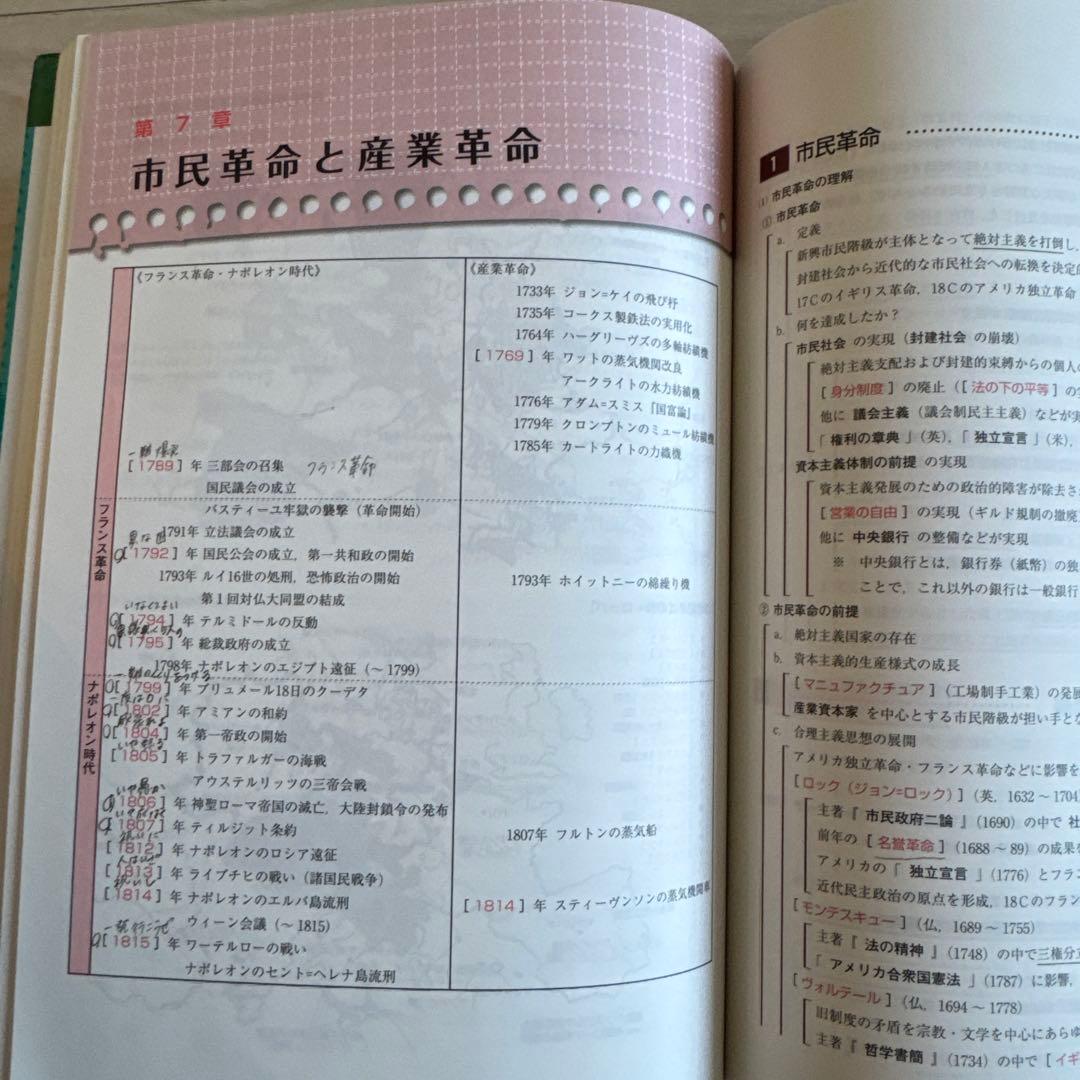 第 7 章
市民革命と産業革命
《フランス革命・ナポレオン時代》
[1789] 年 三部会の召集 フランス革命
国民議会の成立
フランス革命
バスティーユ牢獄の襲撃(革命開始)
1791年 立法議会の成立
[1792] 年 国民公会の成立,第一共和政の開始
1793年 ルイ16世の処刑,恐怖政治の開始
第1回対仏大同盟の結成
[1794] 年 テルミドールの反動
[1795] 年 総裁政府の成立
1798年 ナポレオンのエジプト遠征(～1799)
ナポレオン時代
[1799] 年 ブリュメール18日のクーデタ
[1802] 年 アミアンの和約
[1804] 年 第一帝政の開始
[1805] 年 トラファルガーの海戦
アウステルリッツの三帝会戦
[1806] 年 神聖ローマ帝国の滅亡,大陸封鎖令の発布
[1807] 年 ティルジット条約
[1812] 年 ナポレオンのロシア遠征
[1813] 年 ライプチヒの戦い(諸国民戦争)
[1814] 年 ナポレオンのエルバ島流刑
ウィーン会議(～1815)
[1815] 年 ワーテルローの戦い
ナポレオンのセント=ヘレナ島流刑
《産業革命》
1733年 ジョン=ケイの飛び杼
1735年 コークス製鉄法の実用化
1764年 ハーグリーヴズの多軸紡績機
[1769] 年 ワットの蒸気機関改良
アークライトの水力紡績機
1776年 アダム=スミス『国富論』
1779年 クロンプトンのミュール紡績機
1785年 カートライトの力織機
1793年 ホイットニーの綿繰り機
1807年 フルトンの蒸気船
[1814] 年 スティーヴンソンの蒸気機関車
1 市民革命
(1) 市民革命の理解
① 市民革命
a. 定義
新興市民階級が主体となって絶対主義を打倒し,
封建社会から近代的な市民社会への転換を決定的
17Cのイギリス革命,18Cのアメリカ独立革命
b. 何を達成したか?
市民社会 の実現(封建社会 の崩壊)
絶対主義支配および封建的束縛からの個人の
[身分制度] の廃止([法の下の平等] の
他に 議会主義(議会制民主主義)などが実
「権利の章典」(英),「独立宣言」(米),
資本主義体制の前提 の実現
資本主義発展のための政治的障害が除去さ
[営業の自由] の実現(ギルド規制の撤廃)
他に 中央銀行 の整備などが実現
※ 中央銀行とは,銀行券(紙幣)の独
ことで,これ以外の銀行は一般銀行
② 市民革命の前提
a. 絶対主義国家の存在
b. 資本主義的生産様式の成長
[マニュファクチュア](工場制手工業)の発展
産業資本家 を中心とする市民階級が担い手とな
c. 合理主義思想の展開
アメリカ独立革命・フランス革命などに影響を
[ロック(ジョン=ロック)](英,1632～1704)
主著『市民政府二論』(1690)の中で 社
前年の [名誉革命](1688～89)の成果を
アメリカの「独立宣言」(1776)とフラン
近代民主政治の原点を形成,18Cのフラン
[モンテスキュー](仏,1689～1755)
主著『法の精神』(1748)の中で三権分立
「アメリカ合衆国憲法」(1787)に影響,
[ヴォルテール](仏,1694～1778)
旧制度の矛盾を宗教・文学を中心にあらゆ
主著『哲学書簡』(1734)の中で [イギ